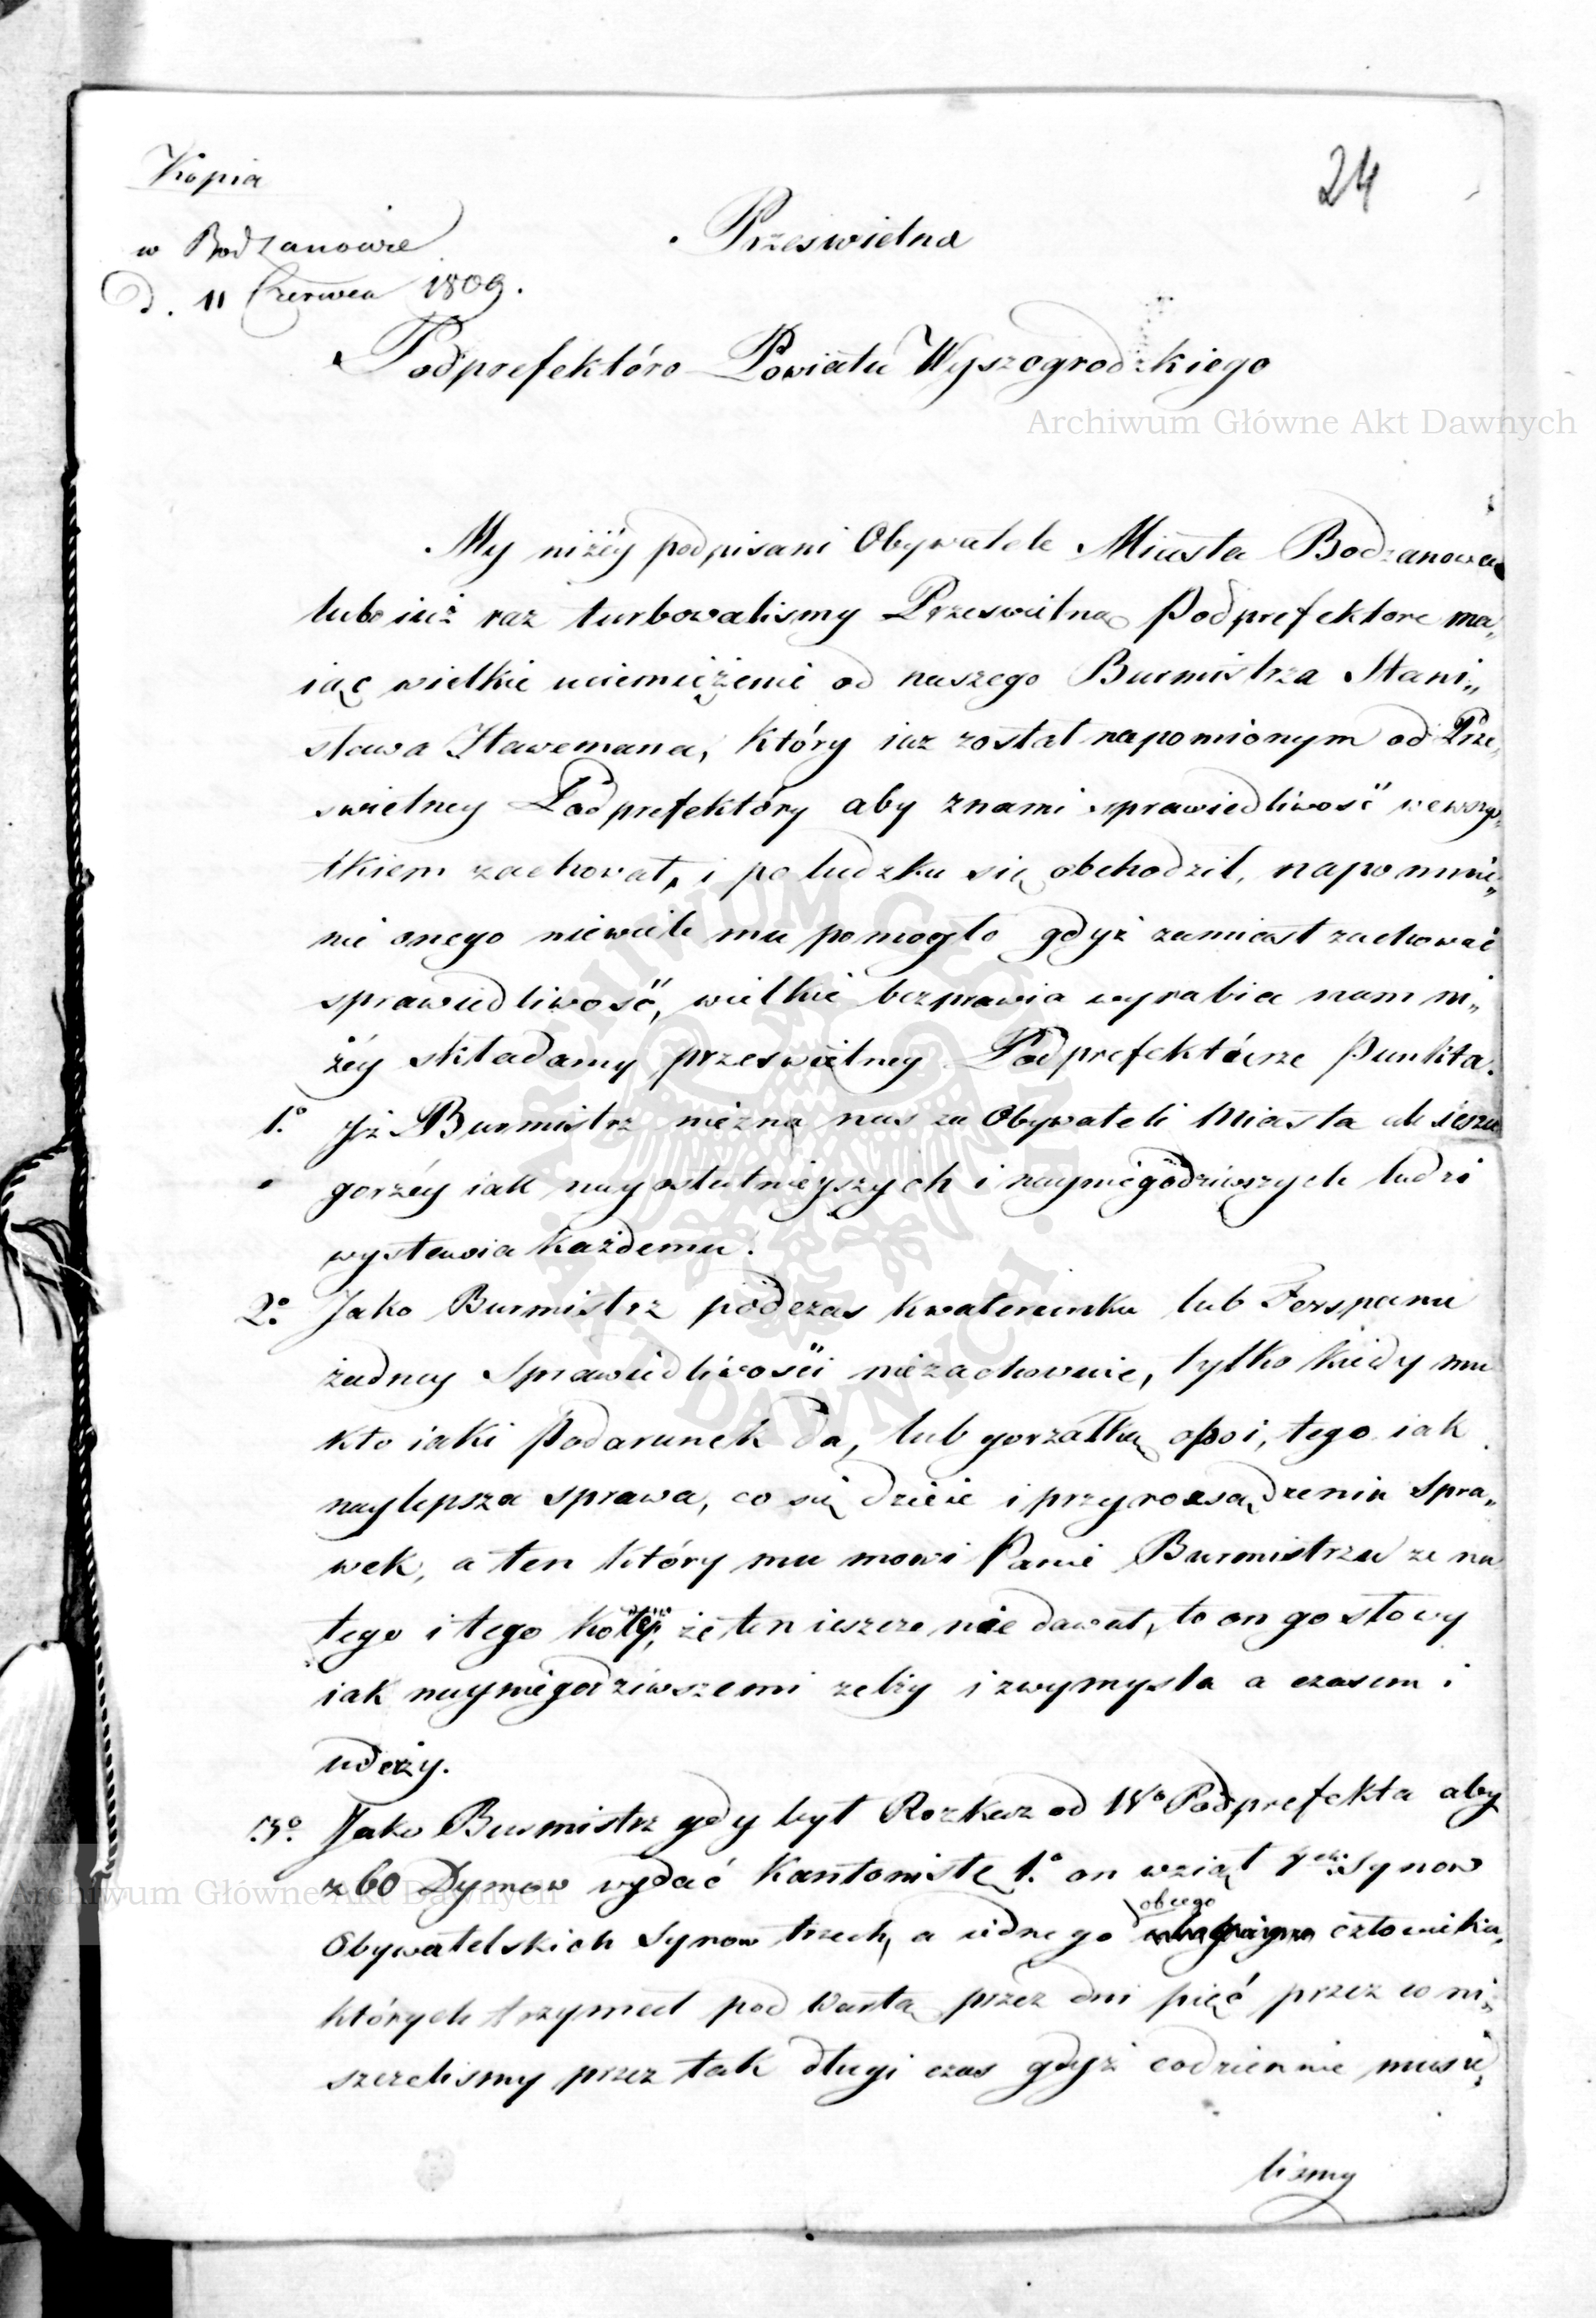 Kopia
24
w Bodzanowie
d. 11 Czerwca 1809.
Prześwietna
Podprefektóro Powiatu Wyszogrodzkiego
Archiwum Główne Akt Dawnych
My niżéy podpisani Obywatele Miasta Bodzanowa
lubo iuż raz turbowalismy Przeswietną Podprefektore ma„
iąc wielkie uciemiężenie od naszego Burmistrza Stani„
sława Stawemana, który iuz został napomionym od Prze„
swietney Podprefektóry aby znami sprawiedliwość wewszys„
tkiem zachował, i poludzku się obchodził, napomnie„
nie onego niewiele mu pomogło gdyż zamiast zachować
sprawiedliwość, wielkie bezprawia wyrabia nam ni„
żéy składamy przeswietney Podprefektórze Punkta.
1º Iż Burmistrz niezna nas za Obywateli Miasta ale ieszcze
gorzéy iak nayostatnieyszych i nayniegodziwszych ludzi
wystawia każdemu.
2º Jako Burmistrz podczas kwaterunku lub Forspanu
żadney Sprawiedliwości niezachowuie, tylko kiedy mu
kto iaki Podarunek da, lub gorzałką opoi, tego iak
naylepsza sprawa, co się dzieie i przyrozsądzeniu Spra„
wek, a ten który mu mowi Panie Burmistrzu ze na
tego i tego koley, że ten ieszcze nie dawał, to on go słowy
iak nayniegodziwszemi zelży i zwymysla a czasem i
udeży.
3º Jako Burmistrz gdy był Rozkaz od Wº Podprefekta aby
z 60 Dymow wydać Kantonistę 1.º on wziął Synow
Archiwum Główne Akt Dawnych
obcego
Obywatelskich Synow trzech, a iednego człowieka,
których trzymał pod Wartą przez dni pięć przez co ni„
szczelismy przez tak długi czas gdyż codziennie musie„
lismy